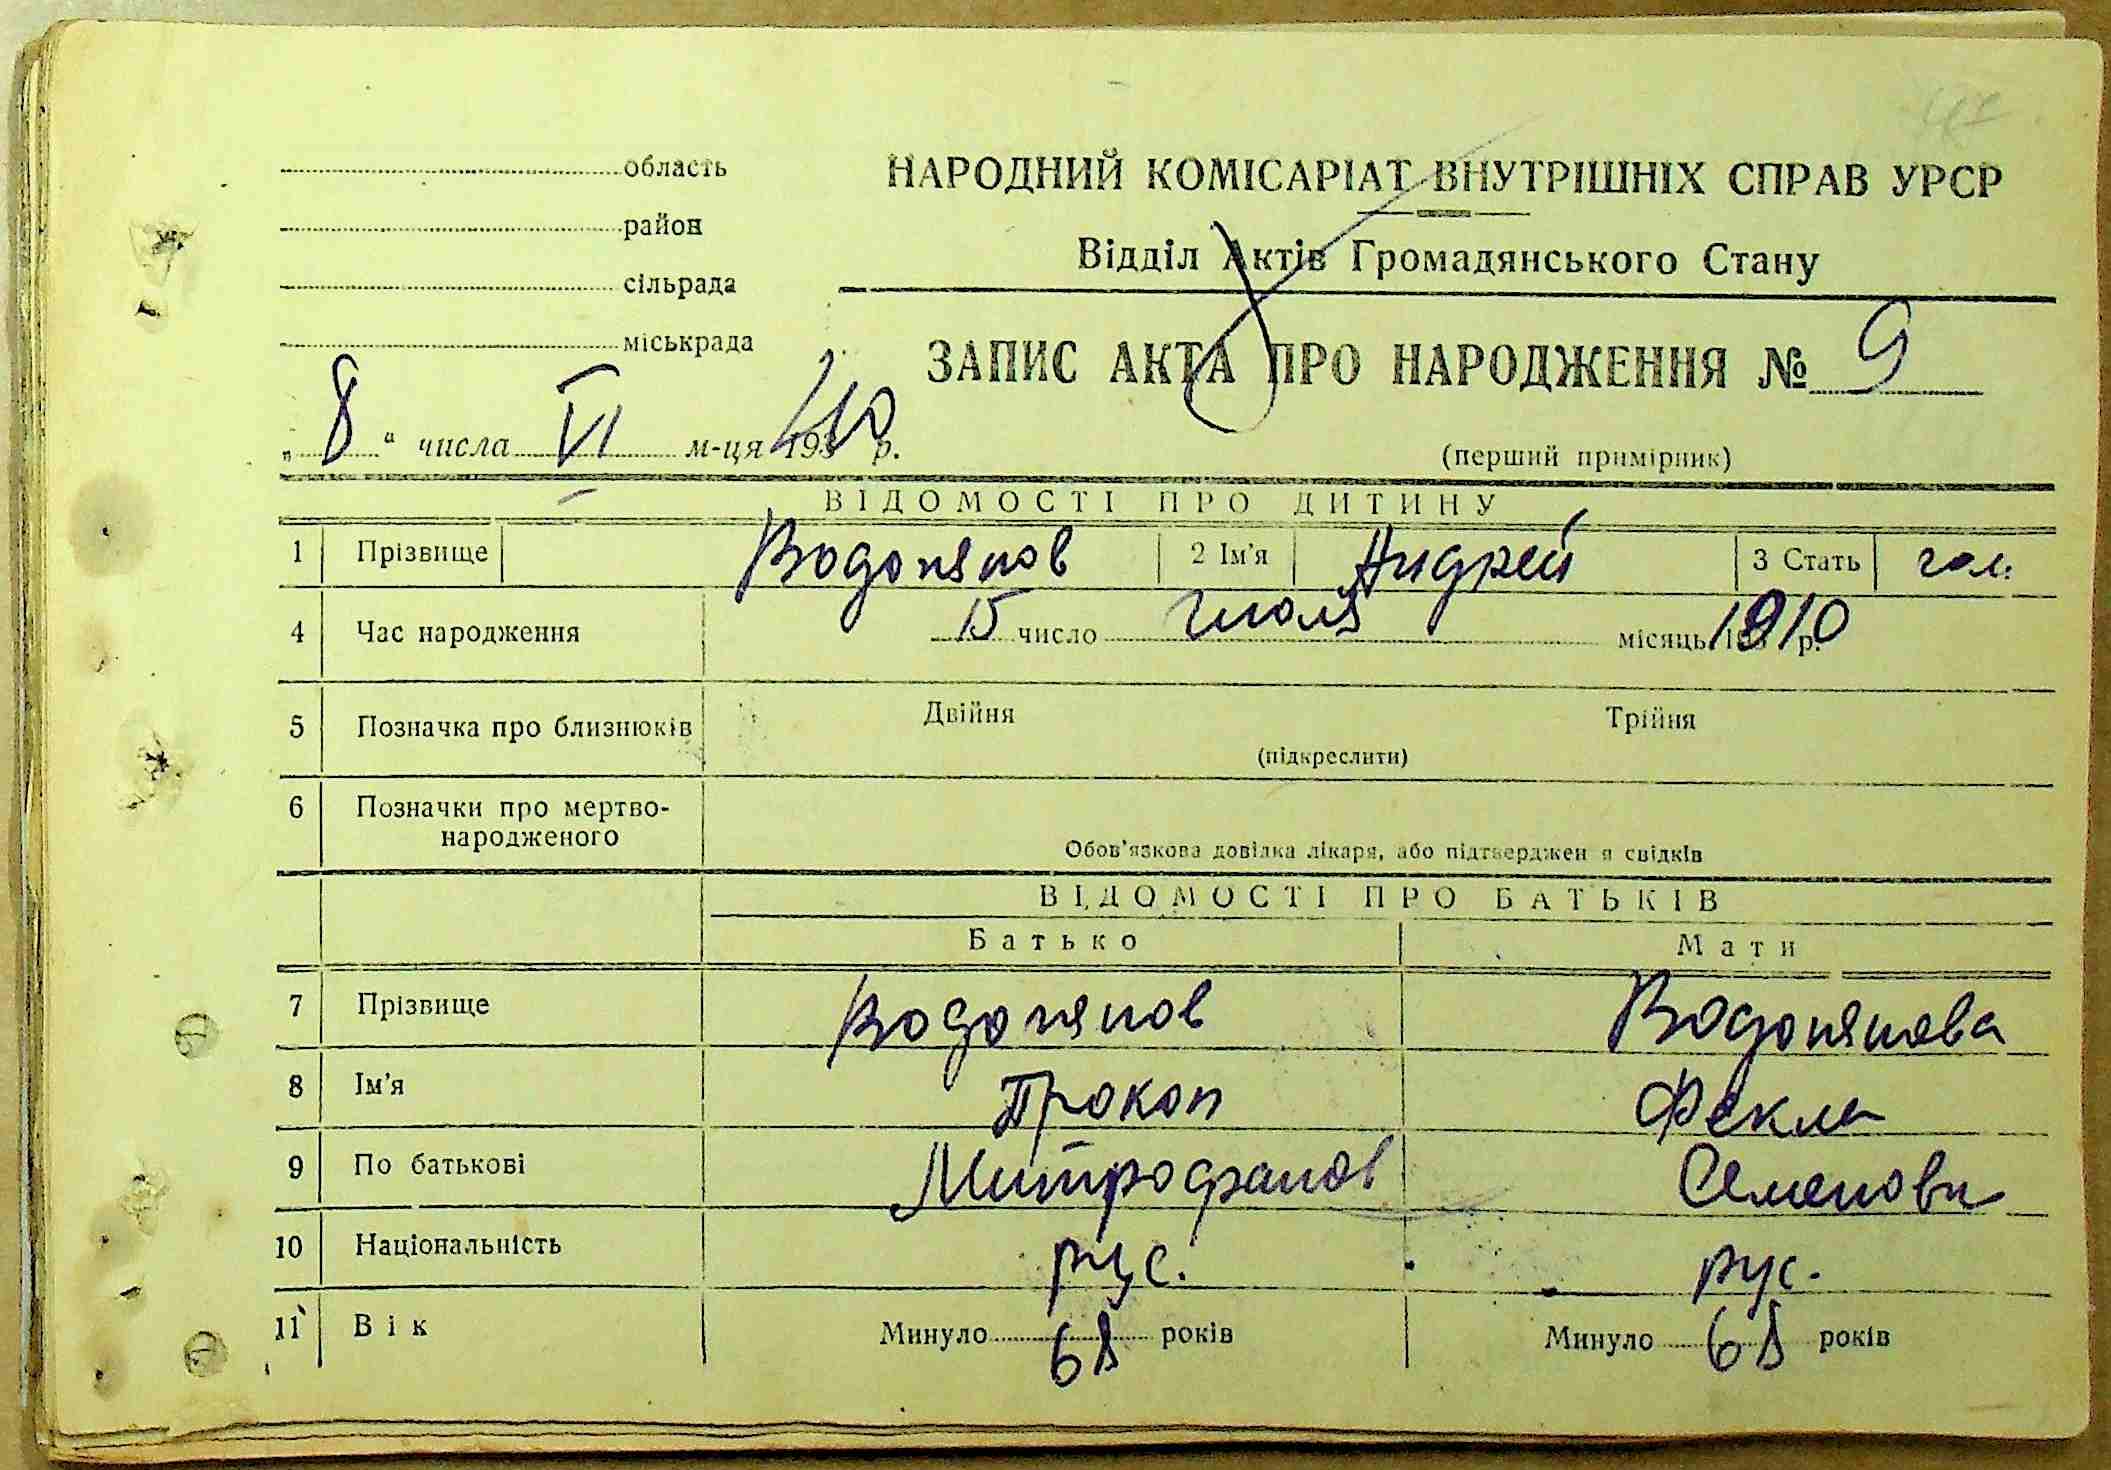 область
район
сільрада
міськрада
НАРОДНИЙ КОМІСАРІАТ ВНУТРІШНІХ СПРАВ УРСР
Відділ Актів Громадянського Стану
ЗАПИС АКТА ПРО НАРОДЖЕННЯ № 9
„8“ числа VI м-ця 1940 р.
(перший примірник)
ВІДОМОСТІ ПРО ДИТИНУ
1 Прізвище Водопянов 2 Ім'я Андрей 3 Стать чол.
4 Час народження 15 число Июля місяць 1910 р.
5 Позначка про близнюків Двійня Трійня
(підкреслити)
6 Позначки про мертво-
народженого
Обов'язкова довілка лікаря, або підтверджен я свідків
ВІДОМОСТІ ПРО БАТЬКІВ
Батько Мати
7 Прізвище Водопянов Водопянова
8 Ім'я Прокоп Фекла
9 По батькові Митрофанов Семеновн
10 Національність рус. рус.
11 Вік Минуло 68 років Минуло 68 років